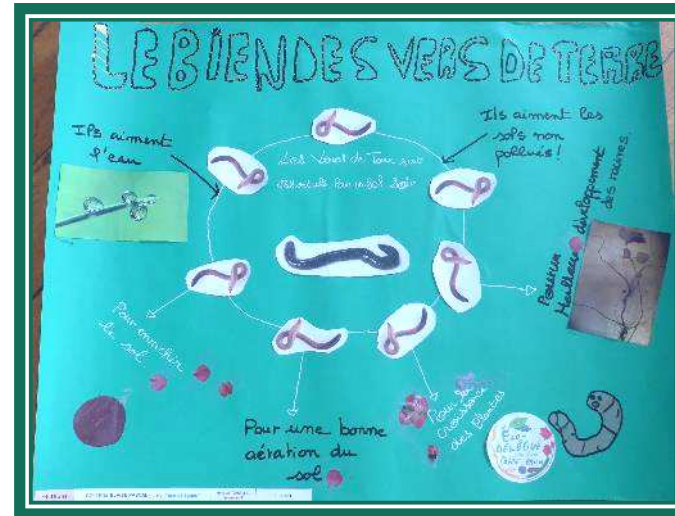 LE BIEN DES VERS DE TERRE
Ils aiment
l'eau
Ils aiment les
sols non
pollués!
Les vers de Terre sont
pour un sol
Pour un
Meilleur développement
des racines
Pour enrichir
le sol
Pour une bonne
aération du
sol
Pour la
croissance
des Plantes
ÉCO-
DÉLÉGUÉ